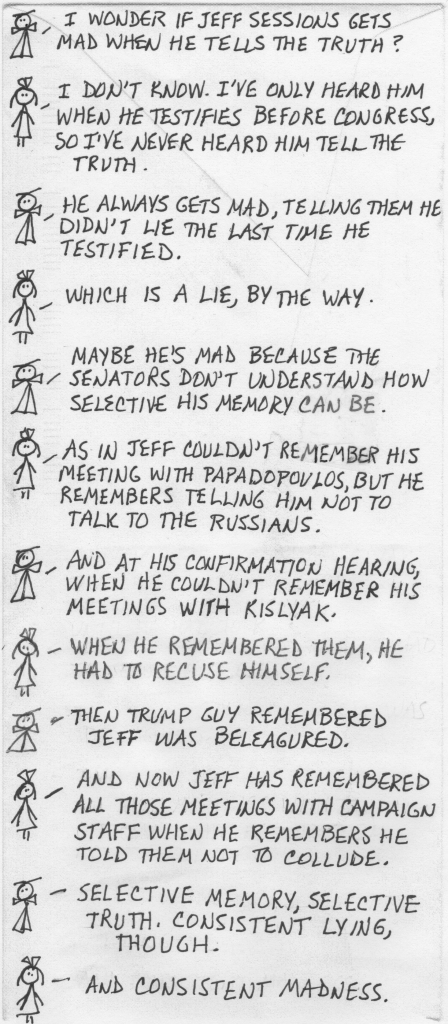 I WONDER IF JEFF SESSIONS GETS
MAD WHEN HE TELLS THE TRUTH?
I DON'T KNOW. I'VE ONLY HEARD HIM
WHEN HE TESTIFIES BEFORE CONGRESS,
SO I'VE NEVER HEARD HIM TELL THE
TRUTH.
HE ALWAYS GETS MAD, TELLING THEM HE
DIDN'T LIE THE LAST TIME HE
TESTIFIED.
WHICH IS A LIE, BY THE WAY.
MAYBE HE'S MAD BECAUSE THE
SENATORS DON'T UNDERSTAND HOW
SELECTIVE HIS MEMORY CAN BE.
AS IN JEFF COULDN'T REMEMBER HIS
MEETING WITH PAPADOPOULOS, BUT HE
REMEMBERS TELLING HIM NOT TO
TALK TO THE RUSSIANS.
AND AT HIS CONFIRMATION HEARING,
WHEN HE COULDN'T REMEMBER HIS
MEETINGS WITH KISLYAK.
WHEN HE REMEMBERED THEM, HE
HAD TO RECUSE HIMSELF.
THEN TRUMP GUY REMEMBERED
JEFF WAS BELEAGURED.
AND NOW JEFF HAS REMEMBERED
ALL THOSE MEETINGS WITH CAMPAIGN
STAFF WHEN HE REMEMBERS HE
TOLD THEM NOT TO COLLUDE.
SELECTIVE MEMORY, SELECTIVE
TRUTH. CONSISTENT LYING,
THOUGH.
AND CONSISTENT MADNESS.